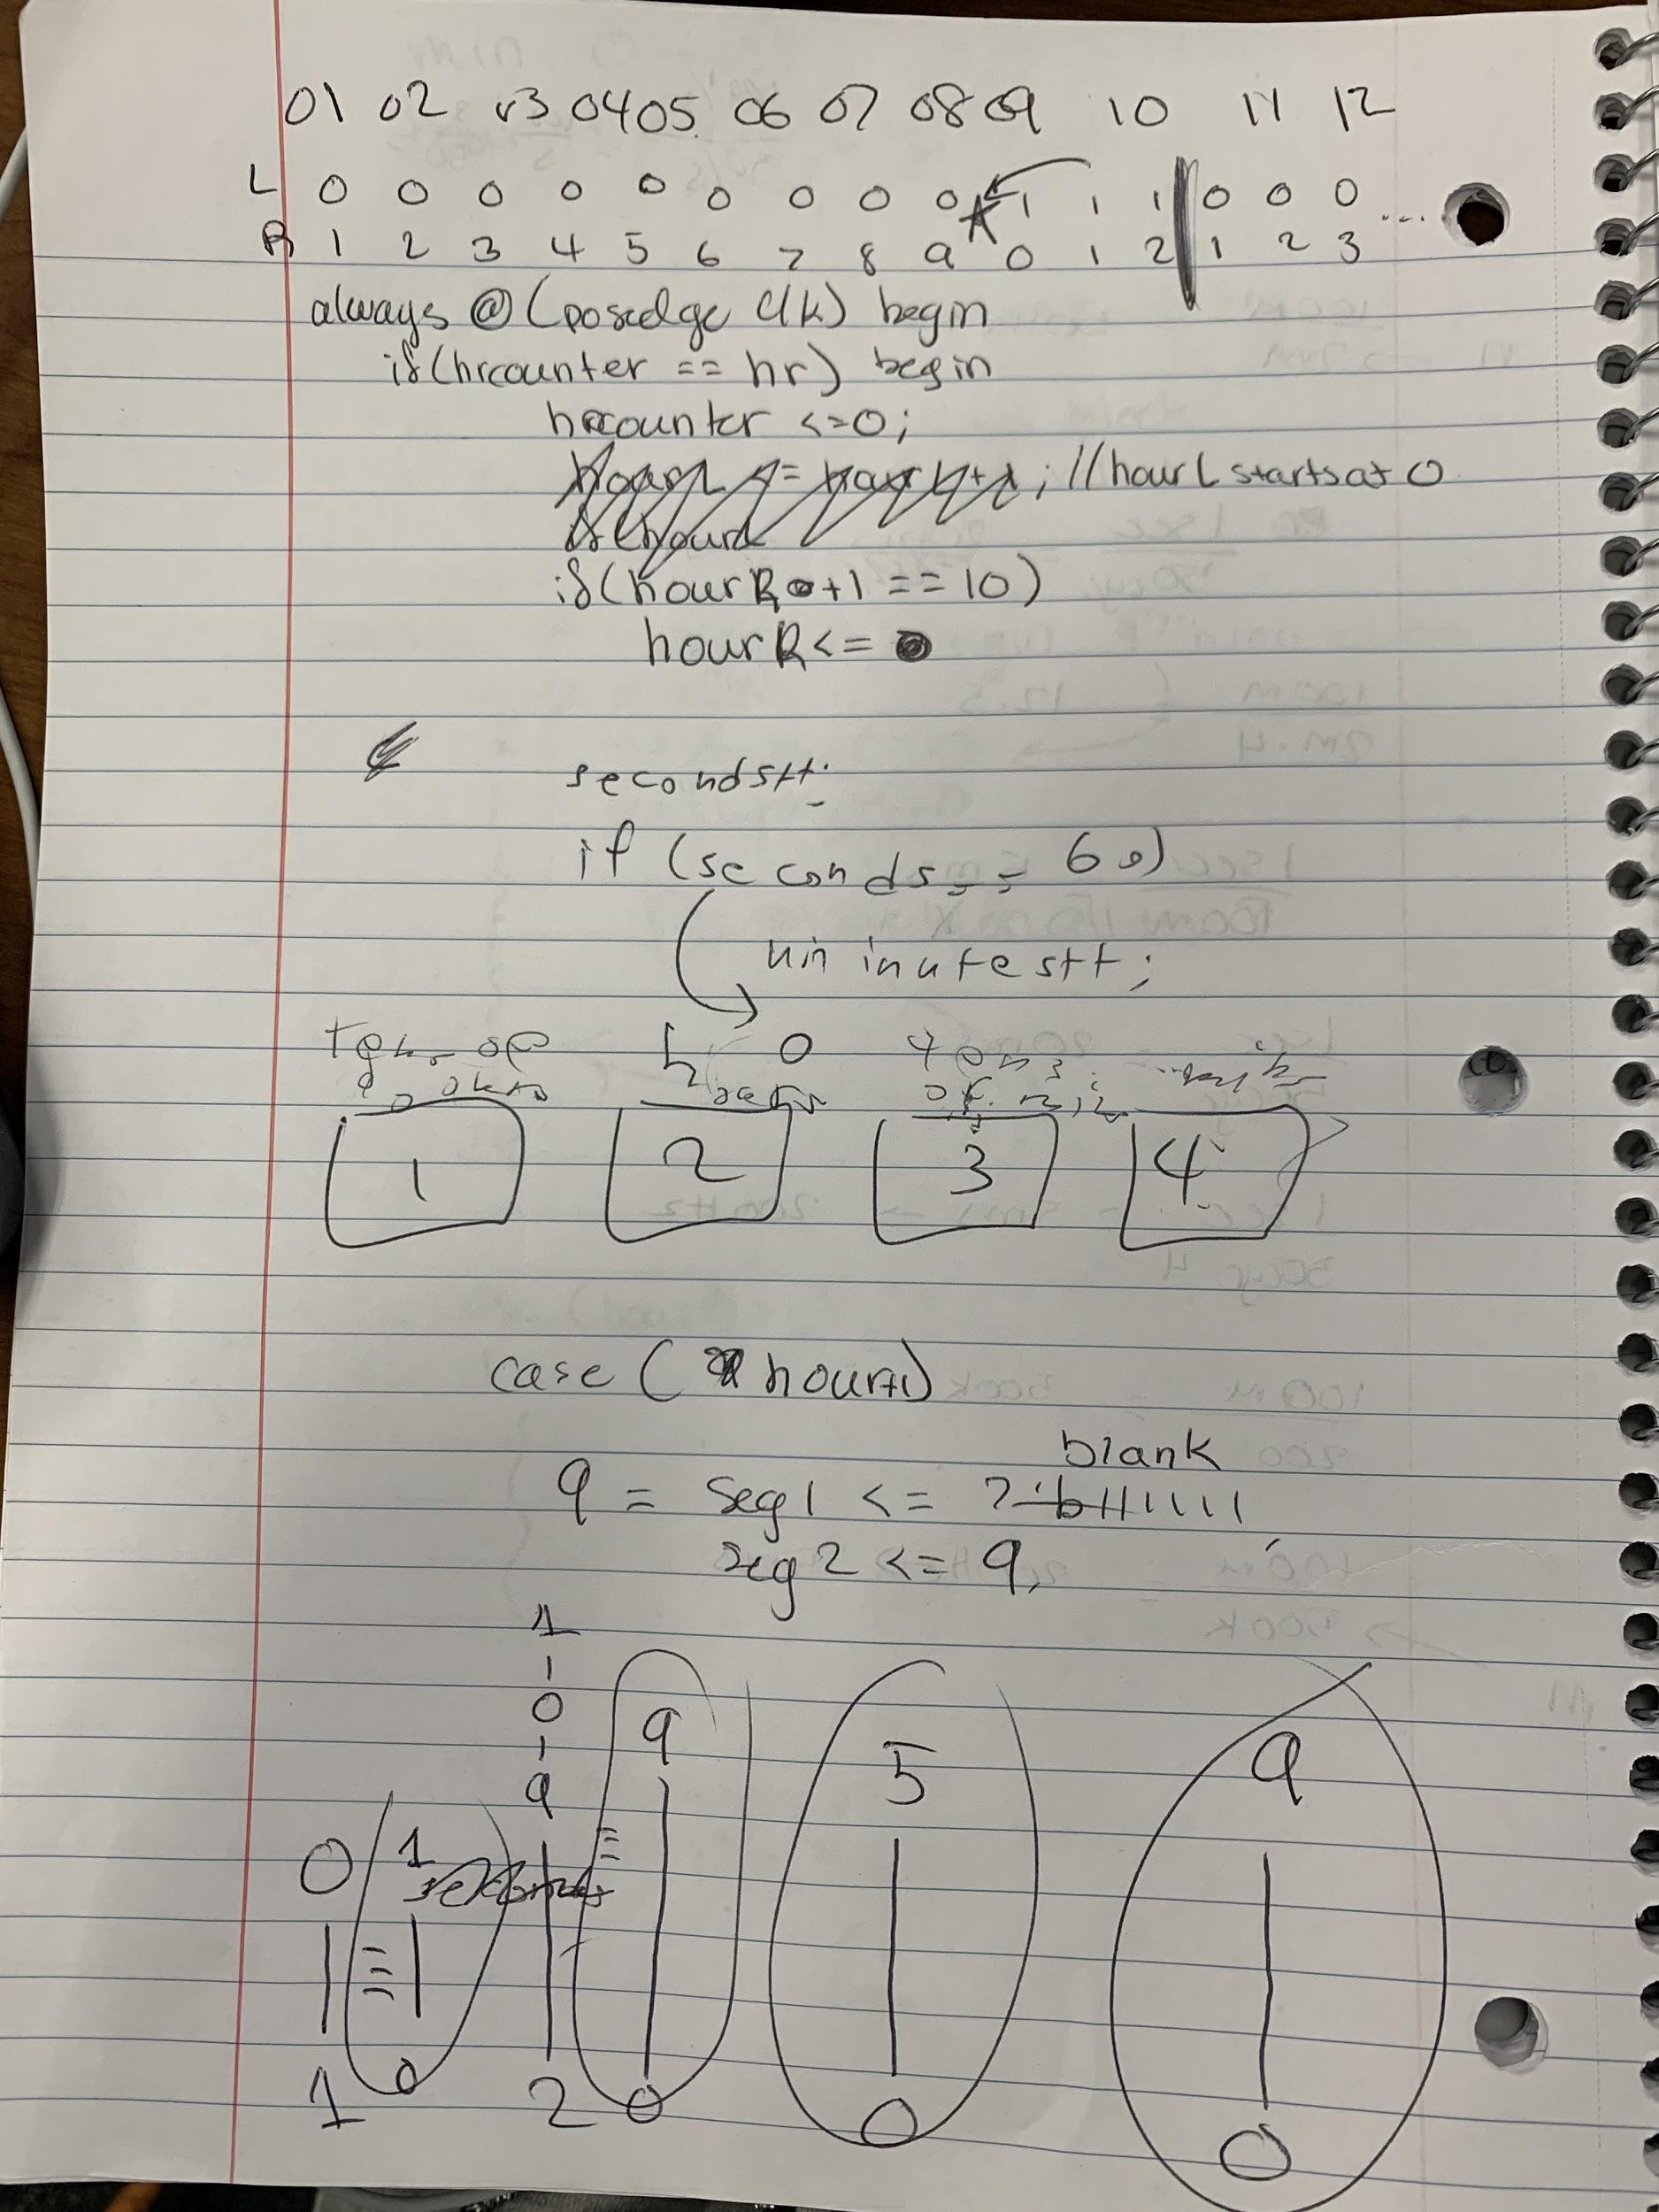 01 02 03 04 05 06 07 08 09 10 11 12
L 0 0 0 0 0 0 0 0 0 1 1 1 0 0 0 ...
R 1 2 3 4 5 6 7 8 9 0 1 2 1 2 3
always @ (posedge clk) begin
if(hrcounter == hr) begin
hrcounter <=0;
hourL <= hourL+1; //hourL starts at 0
if(hourL
if(hourR+1 == 10)
hourR <=
seconds++;
if (seconds == 60)
minutes++;
h 0
tens
1 2 3 4
case ( hour+1)
blank
9 = seg1 <= 7'b1111111;
seg2 <= 9,
1
1
0
1
9 9 5 9
0 1
1 0 2 0 0 0